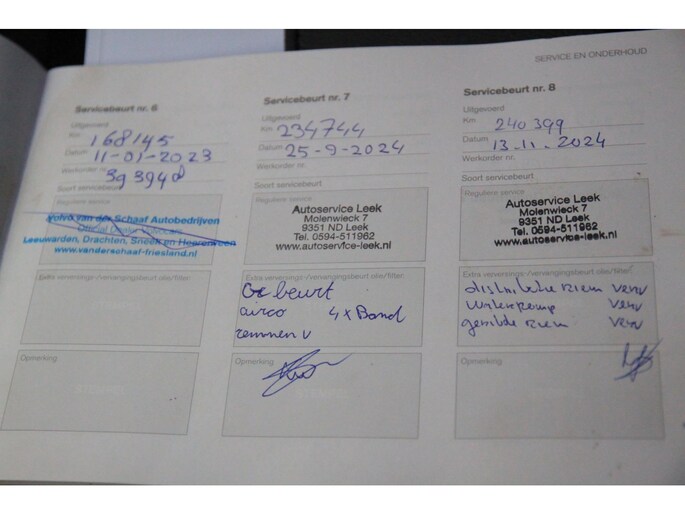 SERVICE EN ONDERHOUD
Servicebeurt nr. 6
Uitgevoerd
Km 168145
Datum 11-01-2023
Werkorder nr. 39394
Soort servicebeurt
Reguliere service
Volvo van der Schaaf Autobedrijven
Leeuwarden, Drachten, Sneek en Heerenveen
www.vanderschaaf-friesland.nl
Extra verversings-/vervangingsbeurt olie/filter
Opmerking
Servicebeurt nr. 7
Uitgevoerd
Km 234744
Datum 25-9-2024
Werkorder nr.
Soort servicebeurt
Reguliere service
Autoservice Leek
Molenwieck 7
9351 ND Leek
Tel. 0594-511962
www.autoservice-leek.nl
Extra verversings-/vervangingsbeurt olie/filter
beurt
airco 4x Band
remmen v
Opmerking
Servicebeurt nr. 8
Uitgevoerd
Km 240399
Datum 13-11-2024
Werkorder nr.
Soort servicebeurt
Reguliere service
Autoservice Leek
Molenwieck 7
9351 ND Leek
Tel. 0594-511962
www.autoservice-leek.nl
Extra verversings-/vervangingsbeurt olie/filter
distributie riem verv
waterpomp verv
geribde riem verv
Opmerking